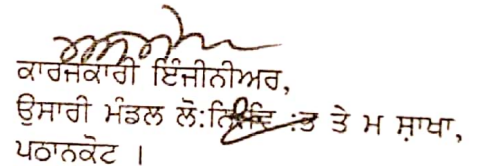 ਕਾਰਜਕਾਰੀ ਇੰਜੀਨੀਅਰ,
ਉਸਾਰੀ ਮੰਡਲ ਲੋ:ਨਿ:ਵਿ :ਭ ਤੇ ਮ ਸ਼ਾਖਾ,
ਪਠਾਨਕੋਟ ।